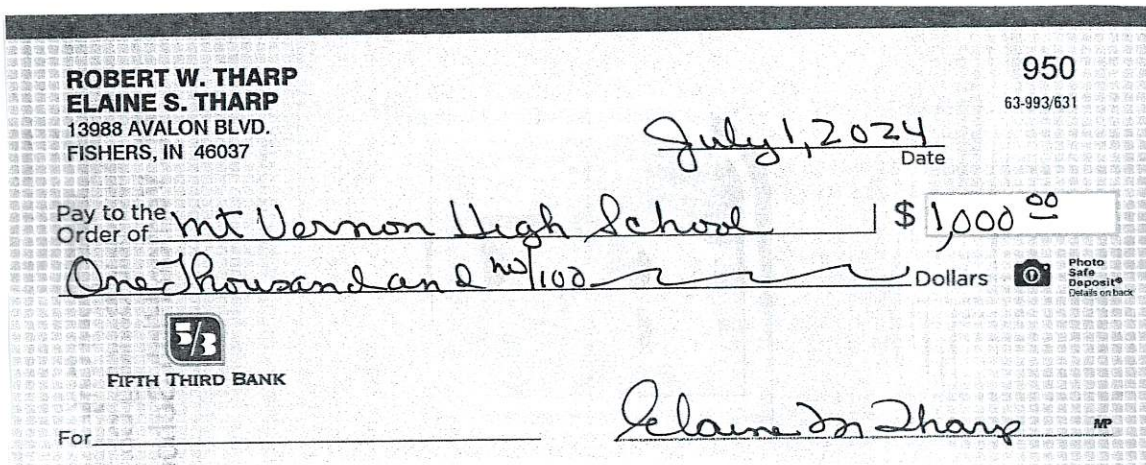 ROBERT W. THARP
ELAINE S. THARP
13988 AVALON BLVD.
FISHERS, IN 46037
950
63-993/631
July 1, 2024
Date
Pay to the Order of Mt Vernon High School $ 1,000 00
One Thousand and no/100 Dollars
Photo Safe Deposit®
Details on back
5/3
FIFTH THIRD BANK
For
Elaine M Tharp
MP